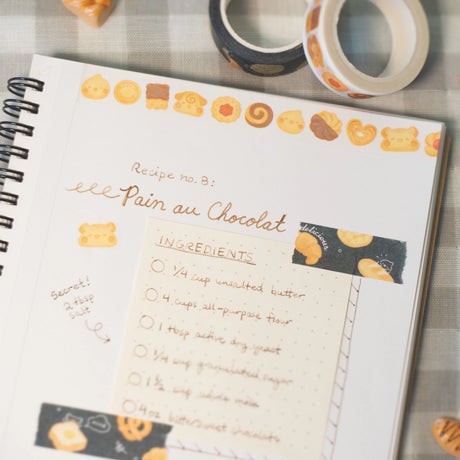 Recipe no. 8:
Pain au Chocolat
delicious
INGREDIENTS
1/4 cup unsalted butter
4 cups all-purpose flour
1 tbsp active dry yeast
1/4 cup granulated sugar
1 1/2 cup whole milk
4 oz bittersweet chocolate
Secret!
2 tbsp
salt